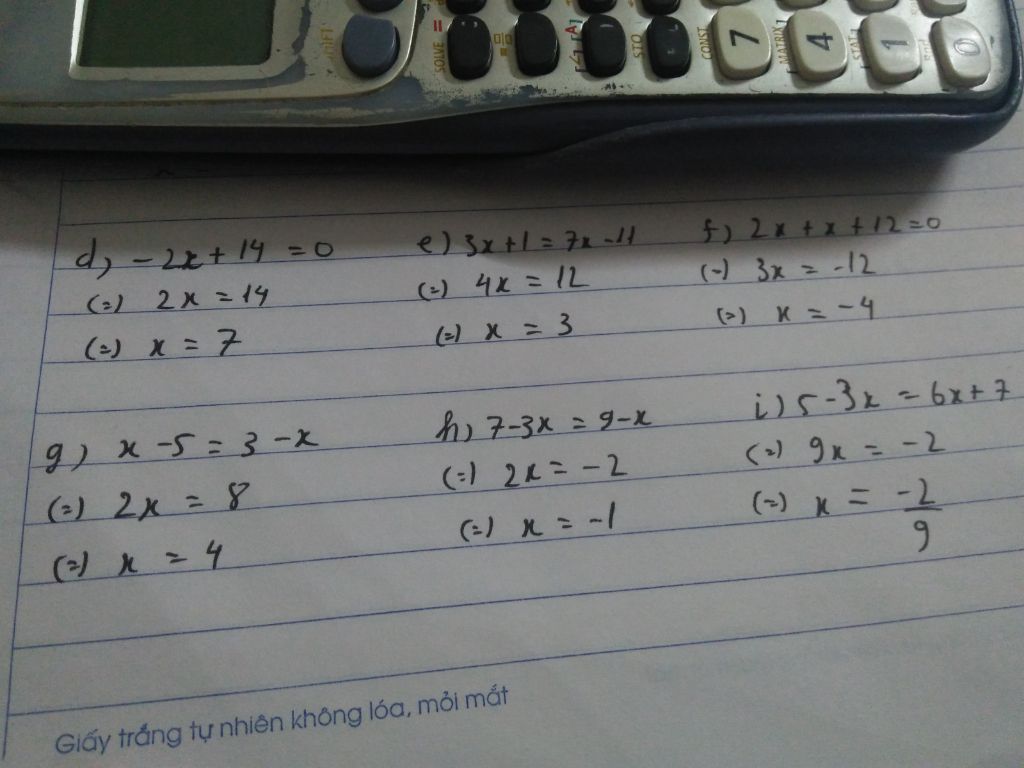 SHIFT
SOLVE =
[∠] [A]
STO
CONST 7
[MATRIX] 4
[STAT] 1
0
d, -2x + 14 = 0 e) 3x+1 = 7x-11 f, 2x + x + 12 = 0
(=) 2x = 14 (=) 4x = 12 (=) 3x = -12
(=) x = 7 (=) x = 3 (=) x = -4
g) x - 5 = 3 - x h, 7-3x = 9-x i) 5-3x = 6x+7
(=) 2x = 8 (=) 2x = -2 (=) 9x = -2
(=) x = 4 (=) x = -1 (=) x = -2/9
Giấy trắng tự nhiên không lóa, mỏi mắt